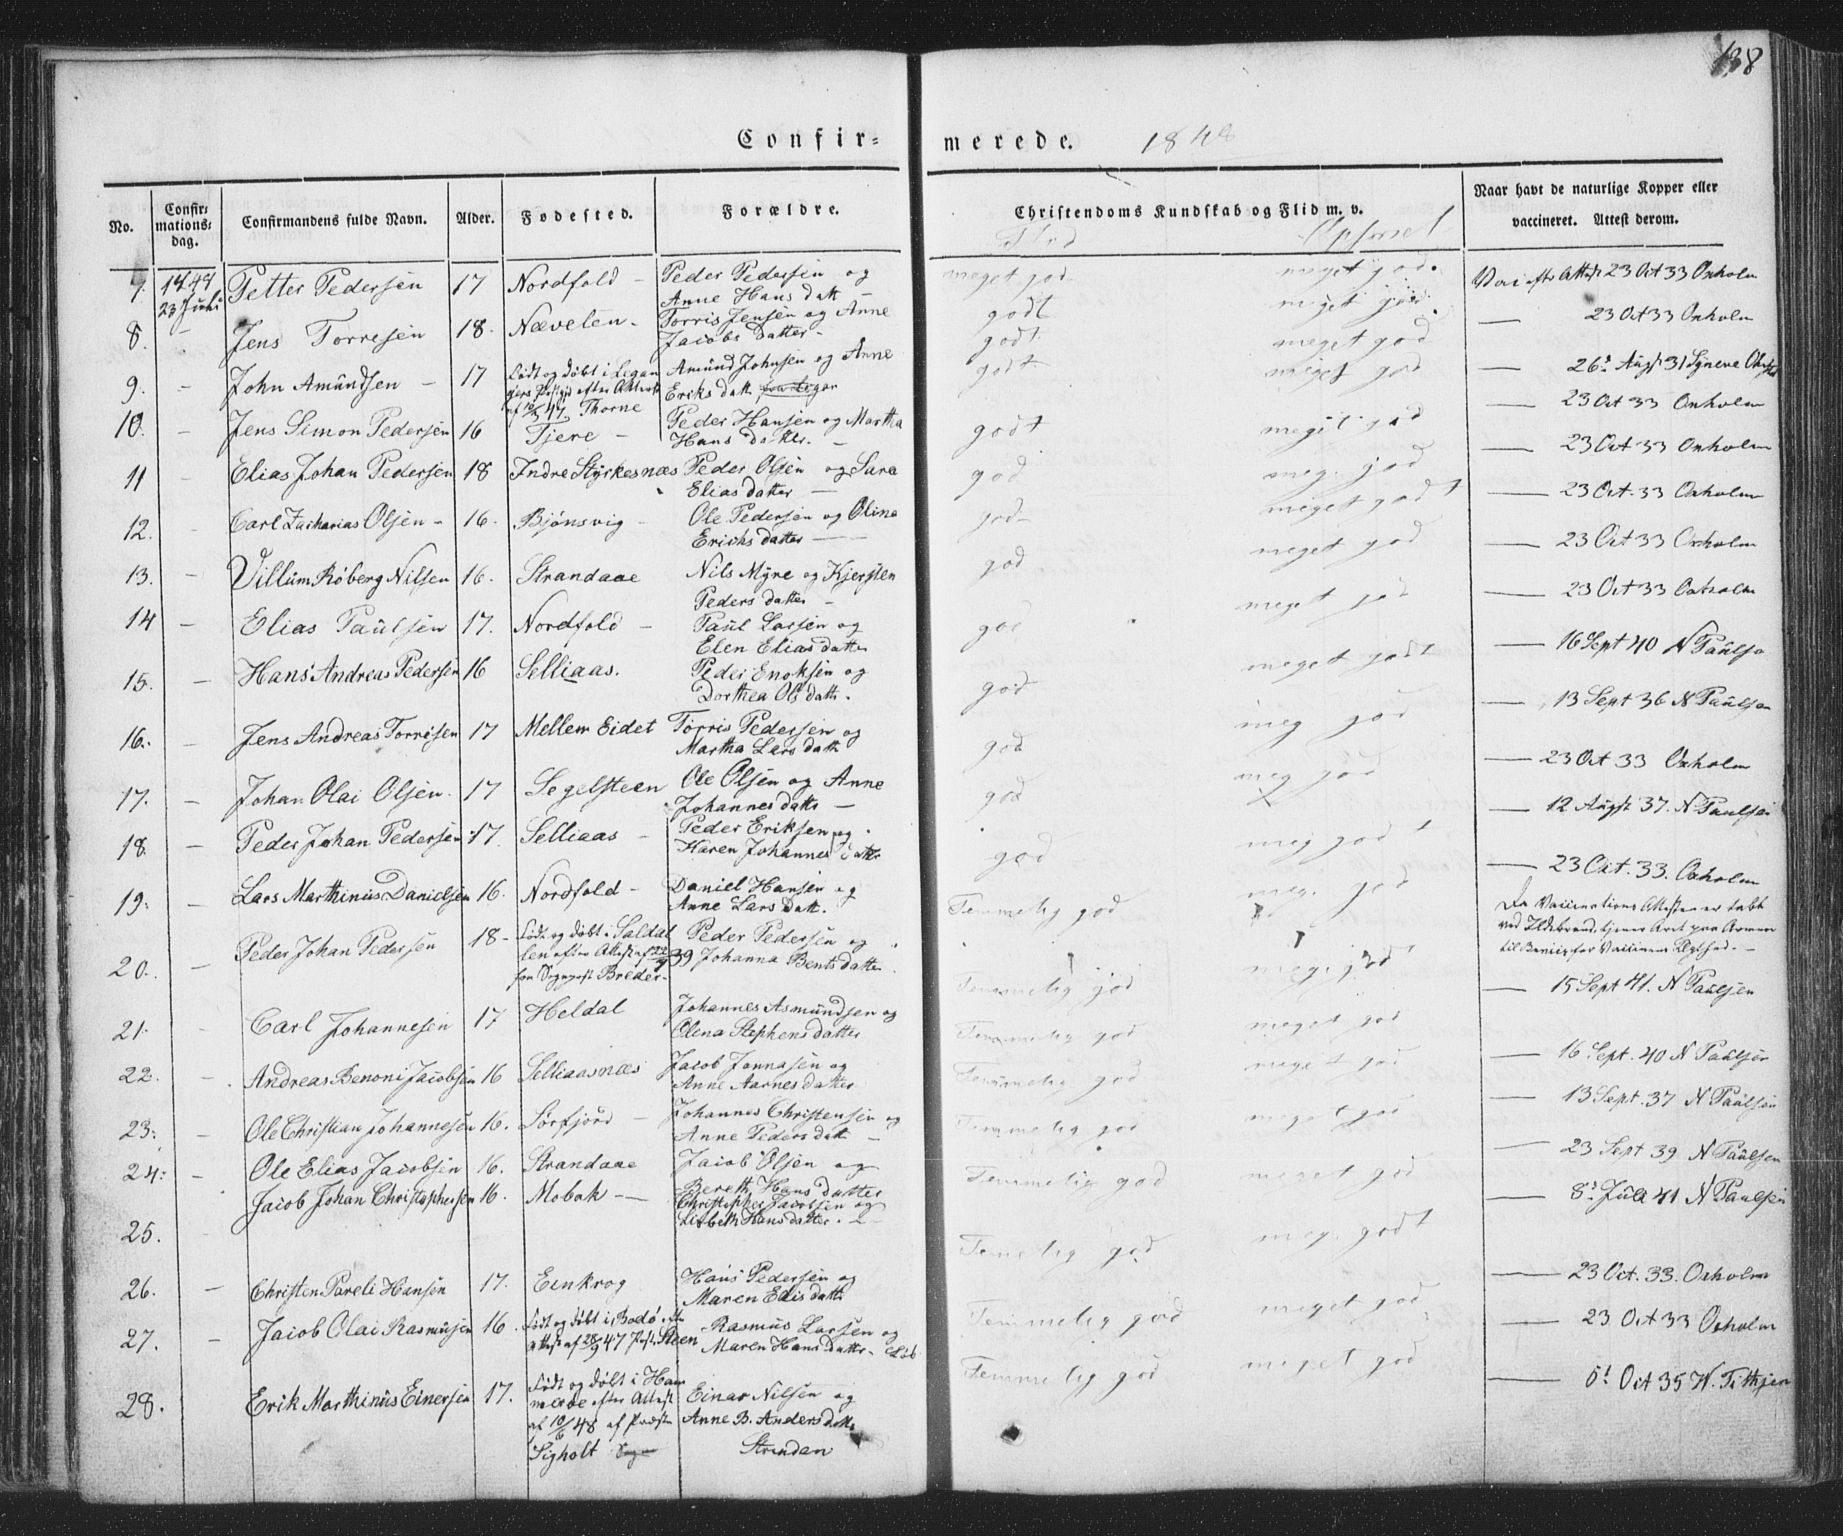 138
Confir= merede. 1848
No. Confir: mations: dag. Confirmandens fulde Navn. Alder. Fodested. Forældre. Christendoms Kundskab og Flid m. v. Naar havt de naturlige Kopper eller vaccineret. Attest derom.
Flid
7. 1848 23 Juli Petter Pedersen 17 Nordfold - Peder Pedersen og meget god meget god. 23 Oct 33 Oxholm
Anne Hans datt -
8. - Jens Torresen 18. Nævelen - Torris Jensen og Anne godt meget god. 23 Oct 33 Oxholm
Jacobs datter -
9. - John Amundsen - 17 Født og døbt i Amund Johnsen og Anne godt meget god 26 Augst 31
efter Attest Eriks datt
af 47 Thorne
10. - Jens Simon Pedersen 16 Tjere - Peder Hansen og Martha godt meget god 23 Oct 33 Oxholm
Hans datter. -
11 - Elias Johan Pedersen 18 Indre Styrkesnæs Peder Olsen og Sara god meg. god — 23 Oct 33 Oxholm
Elias datter —
12. - Carl Zacharias Olsen - 16. Bjönsvig - Ole Pedersen og Oline god meget godt — 23 Oct. 33 Oxholm
Erichs datter —
13. - Villum Röberg Nilsen 16. Strandaae Nils Myre og Kjersten god meget god — 23 Oct 33 Oxholm
Peders datter -
14 - Elias Paulsen 17. Nordfold - Paul Larsen og god meget god — 23 Oct 33 Oxholm
Elen Elias datter
15. - Hans Andreas Pedersen 16 Selliaas. Peder Enoksen og god meget godt — 16 Sept 40 N Paulsen
Dorthea Ols datt.
16. - Jens Andreas Torrisen 17 Mellem Eidet Torris Pedersen og god meg god — 13 Sept 36 N Paulsen
Martha Lars datt
17. - Johan Olai Olsen. 17 Segelsteen Ole Olsen og Anne god meg god — 23 Oct 33 Oxholm
Johannes datt —
18. - Peder Johan Pedersen 17. Selliaas - Peder Eriksen og god meg god — 12 Augst 37. N Paulsen
Karen Johannes datter
19. - Lars Marthinus Danielsen 16. Nordfold - Daniel Hansen og Temmelig god meg. god — 23 Oct. 33. Oxholm
Anne Lars datt.
20. - Peder Johan Pedersen 18 - Født og døbt i Saldal Peder Pedersen og Temmelig god meg. god Da Vaccinations Attesten er tabt
len efter Attest af 39 Johanna Bents datter ved Ildebrand, tjener Arret paa Armen
fra Sognepræst Breder. til Beviis for Vaccinens Ægthed. -
21. - Carl Johannesen 17 Heldal Johannes Asmundsen og Temmelig god meget god — 15 Sept 41. N Paulsen
Olena Stephens datter
22. - Andreas Benoni Jacobsen 16 Selliaasnæs Jacob Jonnasen og Temmelig god meget god — 16 Sept. 40 N Paulsen
Anne Aarnes datter
23. - Ole Christian Johannesen 16. Sørfjord — Johannes Christensen og Temmelig god meget god — 13 Sept. 37 N Paulsen
Anne Peders datt —
24. - Ole Elias Jacobsen 16. Strandaae Jacob Olsen og Temmelig god meget god — 23 Sept 39 N Paulsen
Bereth Hans datter
25. Jacob Johan Christophersen 16. Mobak — Christopher Jacobsen og Temelig god meg. godt — 8 Juli 41 N Paulsen
Lisbeth Hans datter. -
26. - Christen Pareli Hansen 17. Einkrog Hans Pedersen og Temmelig god meget god — 23 Oct. 33. Oxholm
Maren Elis datt
27. Jacob Olai Rasmusen 16. Født og døbt i Bodø efter Rasmus Larsen og Temmelig god meget god — 23 Oct 33 Oxholm
Attest af 28/9 47 Steen Maren Hans datter.
28. Erik Marthinus Einersen 17. Født og døbt i Ham Einar Nilsen og — 6 Oct 35
merøe efter Attest Anne B. Anders datter
af 10/6 48 af Præsten Strindan
Sigholt